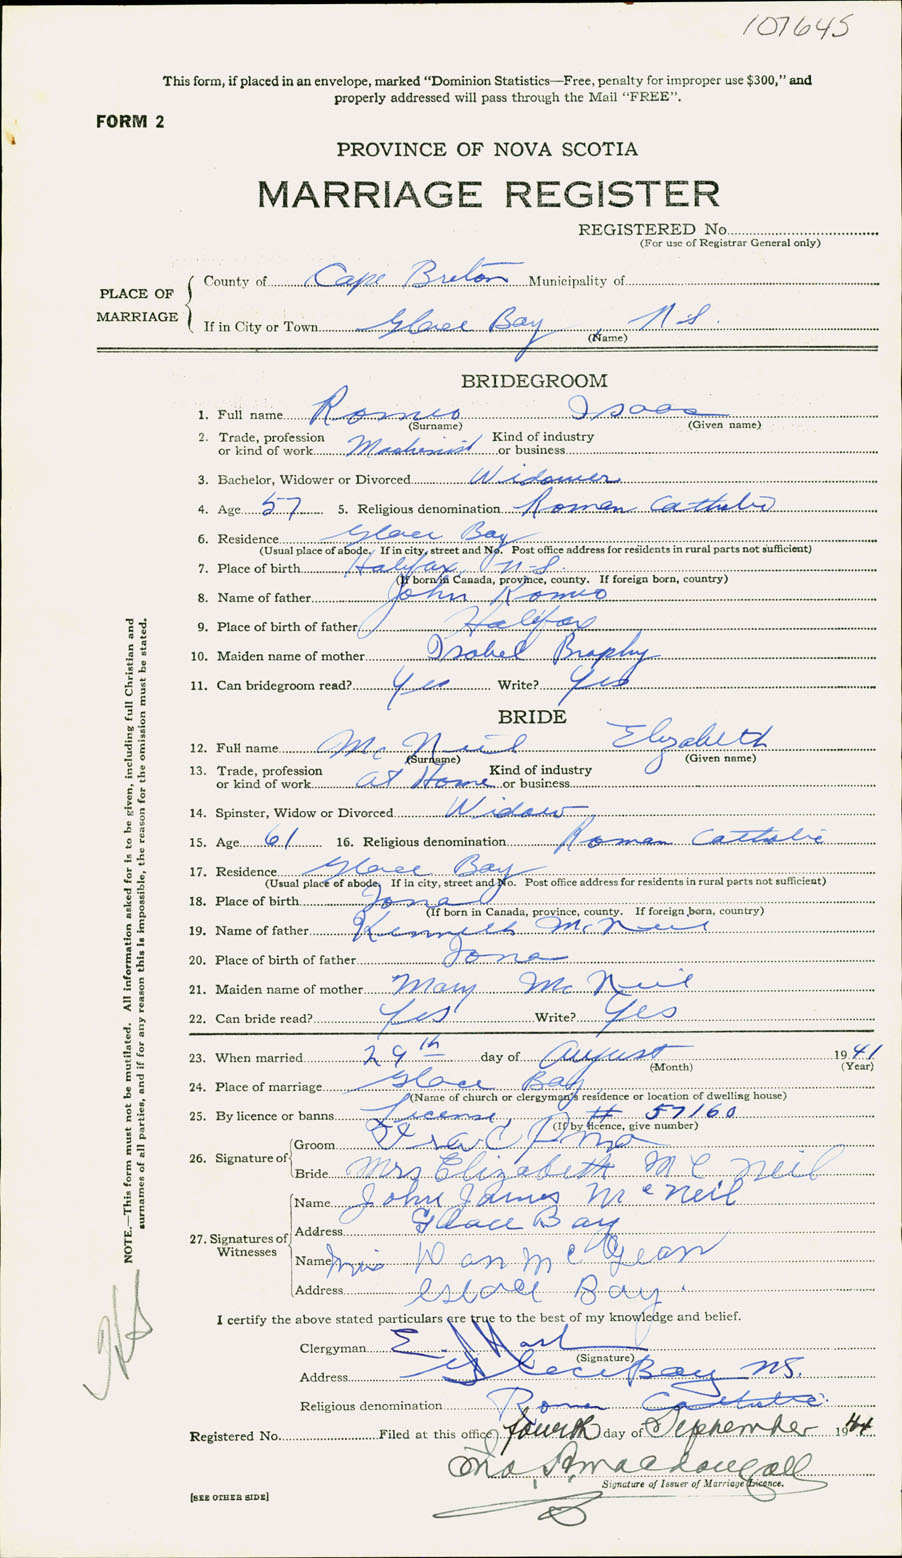 107645
This form, if placed in an envelope, marked "Dominion Statistics—Free, penalty for improper use $300," and
properly addressed will pass through the Mail "FREE".
FORM 2
PROVINCE OF NOVA SCOTIA
MARRIAGE REGISTER
REGISTERED No.
(For use of Registrar General only)
PLACE OF MARRIAGE
County of Cape Breton Municipality of
If in City or Town Glace Bay, N.S.
(Name)
BRIDEGROOM
1. Full name Romeo Isaac
(Surname) (Given name)
2. Trade, profession or kind of work Machinist Kind of industry or business
3. Bachelor, Widower or Divorced Widower
4. Age 57 5. Religious denomination Roman Catholic
6. Residence Glace Bay
(Usual place of abode. If in city, street and No. Post office address for residents in rural parts not sufficient)
7. Place of birth Halifax N.S.
(If born in Canada, province, county. If foreign born, country)
8. Name of father John Romeo
9. Place of birth of father Halifax
10. Maiden name of mother Isabel Brophy
11. Can bridegroom read? Yes Write? Yes
BRIDE
12. Full name McNeil Elizabeth
(Surname) (Given name)
13. Trade, profession or kind of work At Home Kind of industry or business
14. Spinster, Widow or Divorced Widow
15. Age 61 16. Religious denomination Roman Catholic
17. Residence Glace Bay
(Usual place of abode. If in city, street and No. Post office address for residents in rural parts not sufficient)
18. Place of birth Iona
(If born in Canada, province, county. If foreign born, country)
19. Name of father Kenneth McNeil
20. Place of birth of father Iona
21. Maiden name of mother Mary McNeil
22. Can bride read? Yes Write? Yes
23. When married 29th day of August 1941
(Month) (Year)
24. Place of marriage Glace Bay
(Name of church or clergyman's residence or location of dwelling house)
25. By licence or banns License, # 57160
(If by licence, give number)
26. Signature of
Groom
Bride Mrs Elizabeth McNeil
27. Signatures of Witnesses
Name John James McNeil
Address Glace Bay
Name Dan
Address Glace Bay.
I certify the above stated particulars are true to the best of my knowledge and belief.
Clergyman E.
(Signature)
Address Glace Bay NS.
Religious denomination Roman Catholic
Registered No. Filed at this office fourth day of September 19
Macdougall
Signature of Issuer of Marriage Licence.
[SEE OTHER SIDE]
NOTE.—This form must not be mutilated. All information asked for is to be given, including full Christian and
surnames of all parties, and if for any reason this is impossible, the reason for the omission must be stated.